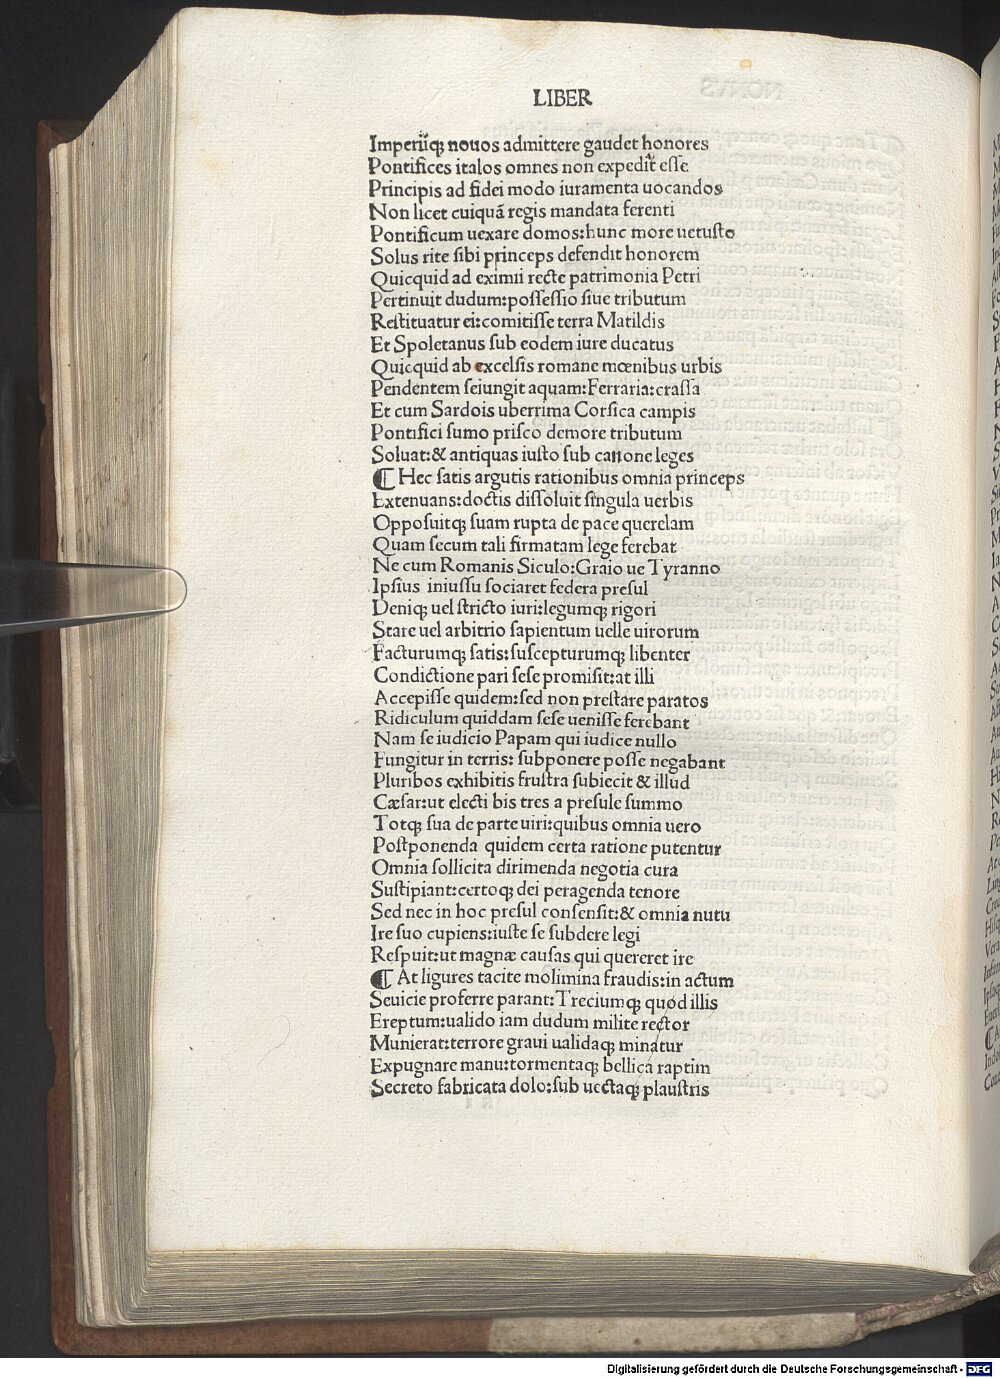 LIBER
Imperiiq̃ nouos admittere gaudet honores
Pontifices italos omnes non expedit esse
Principis ad fidei modo iuramenta uocandos
Non licet cuiquã regis mandata ferenti
Pontificum uexare domos:hunc more uetusto
Solus rite sibi princeps defendit honorem
Quicquid ad eximii recte patrimonia Petri
Pertinuit dudum:possessio siue tributum
Restituatur ei:comitisse terra Matildis
Et Spoletanus sub eodem iure ducatus
Quicquid ab excelsis romane mœnibus urbis
Pendentem seiungit aquam:Ferraria:crassa
Et cum Sardois uberrima Corsica campis
Pontifici sumo prisco demore tributum
Soluat:& antiquas iusto sub canone leges
¶ Hec satis argutis rationibus omnia princeps
Extenuans:doctis dissoluit singula uerbis
Opposuitq̃ suam rupta de pace querelam
Quam secum tali firmatam lege ferebat
Ne cum Romanis Siculo:Graio ue Tyranno
Ipsius iniussu sociaret federa presul
Deniq̃ uel stricto iuri:legumq̃ rigori
Stare uel arbitrio sapientum uelle uirorum
Facturumq̃ satis:suscepturumq̃ libenter
Condictione pari sese promisit:at illi
Accepisse quidem:sed non prestare paratos
Ridiculum quiddam sese uenisse ferebant
Nam se iudicio Papam qui iudice nullo
Fungitur in terris: subponere posse negabant
Pluribos exhibitis frustra subiecit & illud
Cæsar:ut electi bis tres a presule summo
Totq̃ sua de parte uiri:quibus omnia uero
Postponenda quidem certa ratione putentur
Omnia sollicita dirimenda negotia cura
Sustipiant:certoq̃ dei peragenda tenore
Sed nec in hoc presul consensit:& omnia nutu
Ire suo cupiens:iuste se subdere legi
Respuit:ut magnæ causas qui quereret ire
¶ At ligures tacite molimina fraudis:in actum
Seuicie proferre parant:Treciumq̃ quod illis
Ereptum:ualido iam dudum milite rector
Munierat:terrore graui ualidaq̃ minatur
Expugnare manu:tormentaq̃ bellica raptim
Secreto fabricata dolo:sub uectaq̃ plaustris
Digitalisierung gefördert durch die Deutsche Forschungsgemeinschaft - DFG